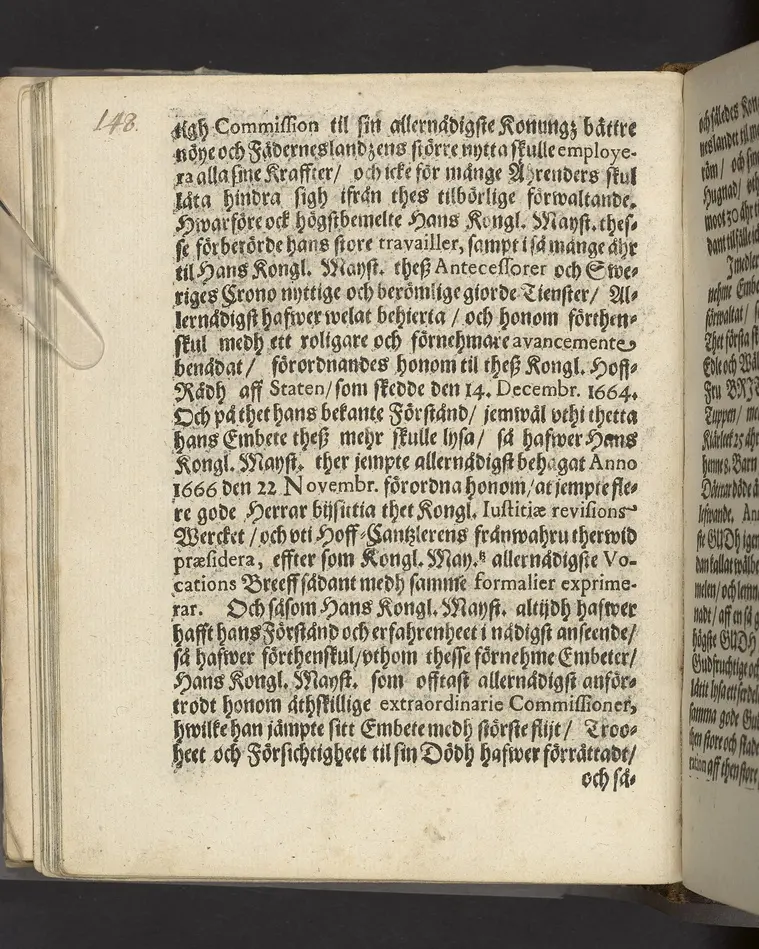 148.
tigh Commission til sin allernådigste Konungz bättre
nöye och Fäderneslandzens större nytta skulle employe-
ra alla sine Kraffter/ och icke för månge Ährenders skul
låta hindra sigh ifrån thes tilbörlige förwaltande.
Hwarföre ock högstbemelte Hans Kongl. Mayst. thes-
se förberörde hans store travailler, sampt i så månge åhr
til Hans Kongl. Mayst. theß Antecessorer och Swe-
riges Crono nyttige och berömlige giorde Tienster/ Al-
lernådigst hafwer welat behierta / och honom förthen-
skul medh ett roligare och förnehmare avancemente
benådat/ förordnandes honom til theß Kongl. Hoff-
Rådh aff Staten/ som skedde den 14. Decembr. 1664.
Och på thet hans bekante Förstånd/ jemwäl vthi thetta
hans Embete theß mehr skulle lysa/ så hafwer Hans
Kongl. Mayst. ther jempte allernådigst behagat Anno
1666 den 22 Novembr. förordna honom/ at jempte fle-
re gode Herrar bijsittia thet Kongl. Iustitiæ revisions-
Wercket / och vti Hoff-Cantzlerens frånwahru therwid
præsidera, effter som Kongl. May.ß allernådigste Vo-
cations Breeff sådant medh samme formalier exprime-
rar. Och såsom Hans Kongl. Mayst. altijdh hafwer
hafft hans Förstånd och erfahrenheet i nådigst anseende/
så hafwer förthenskul/ vthom thesse förnehme Embeter/
Hans Kongl. Mayst. som offtast allernådigst anför-
trodt honom åthskillige extraordinarie Commissioner,
hwilke han jämpte sitt Embete medh störste flijt/ Troo-
heet och Försichtigheet til sin Dödh hafwer förrättadt/
och så-